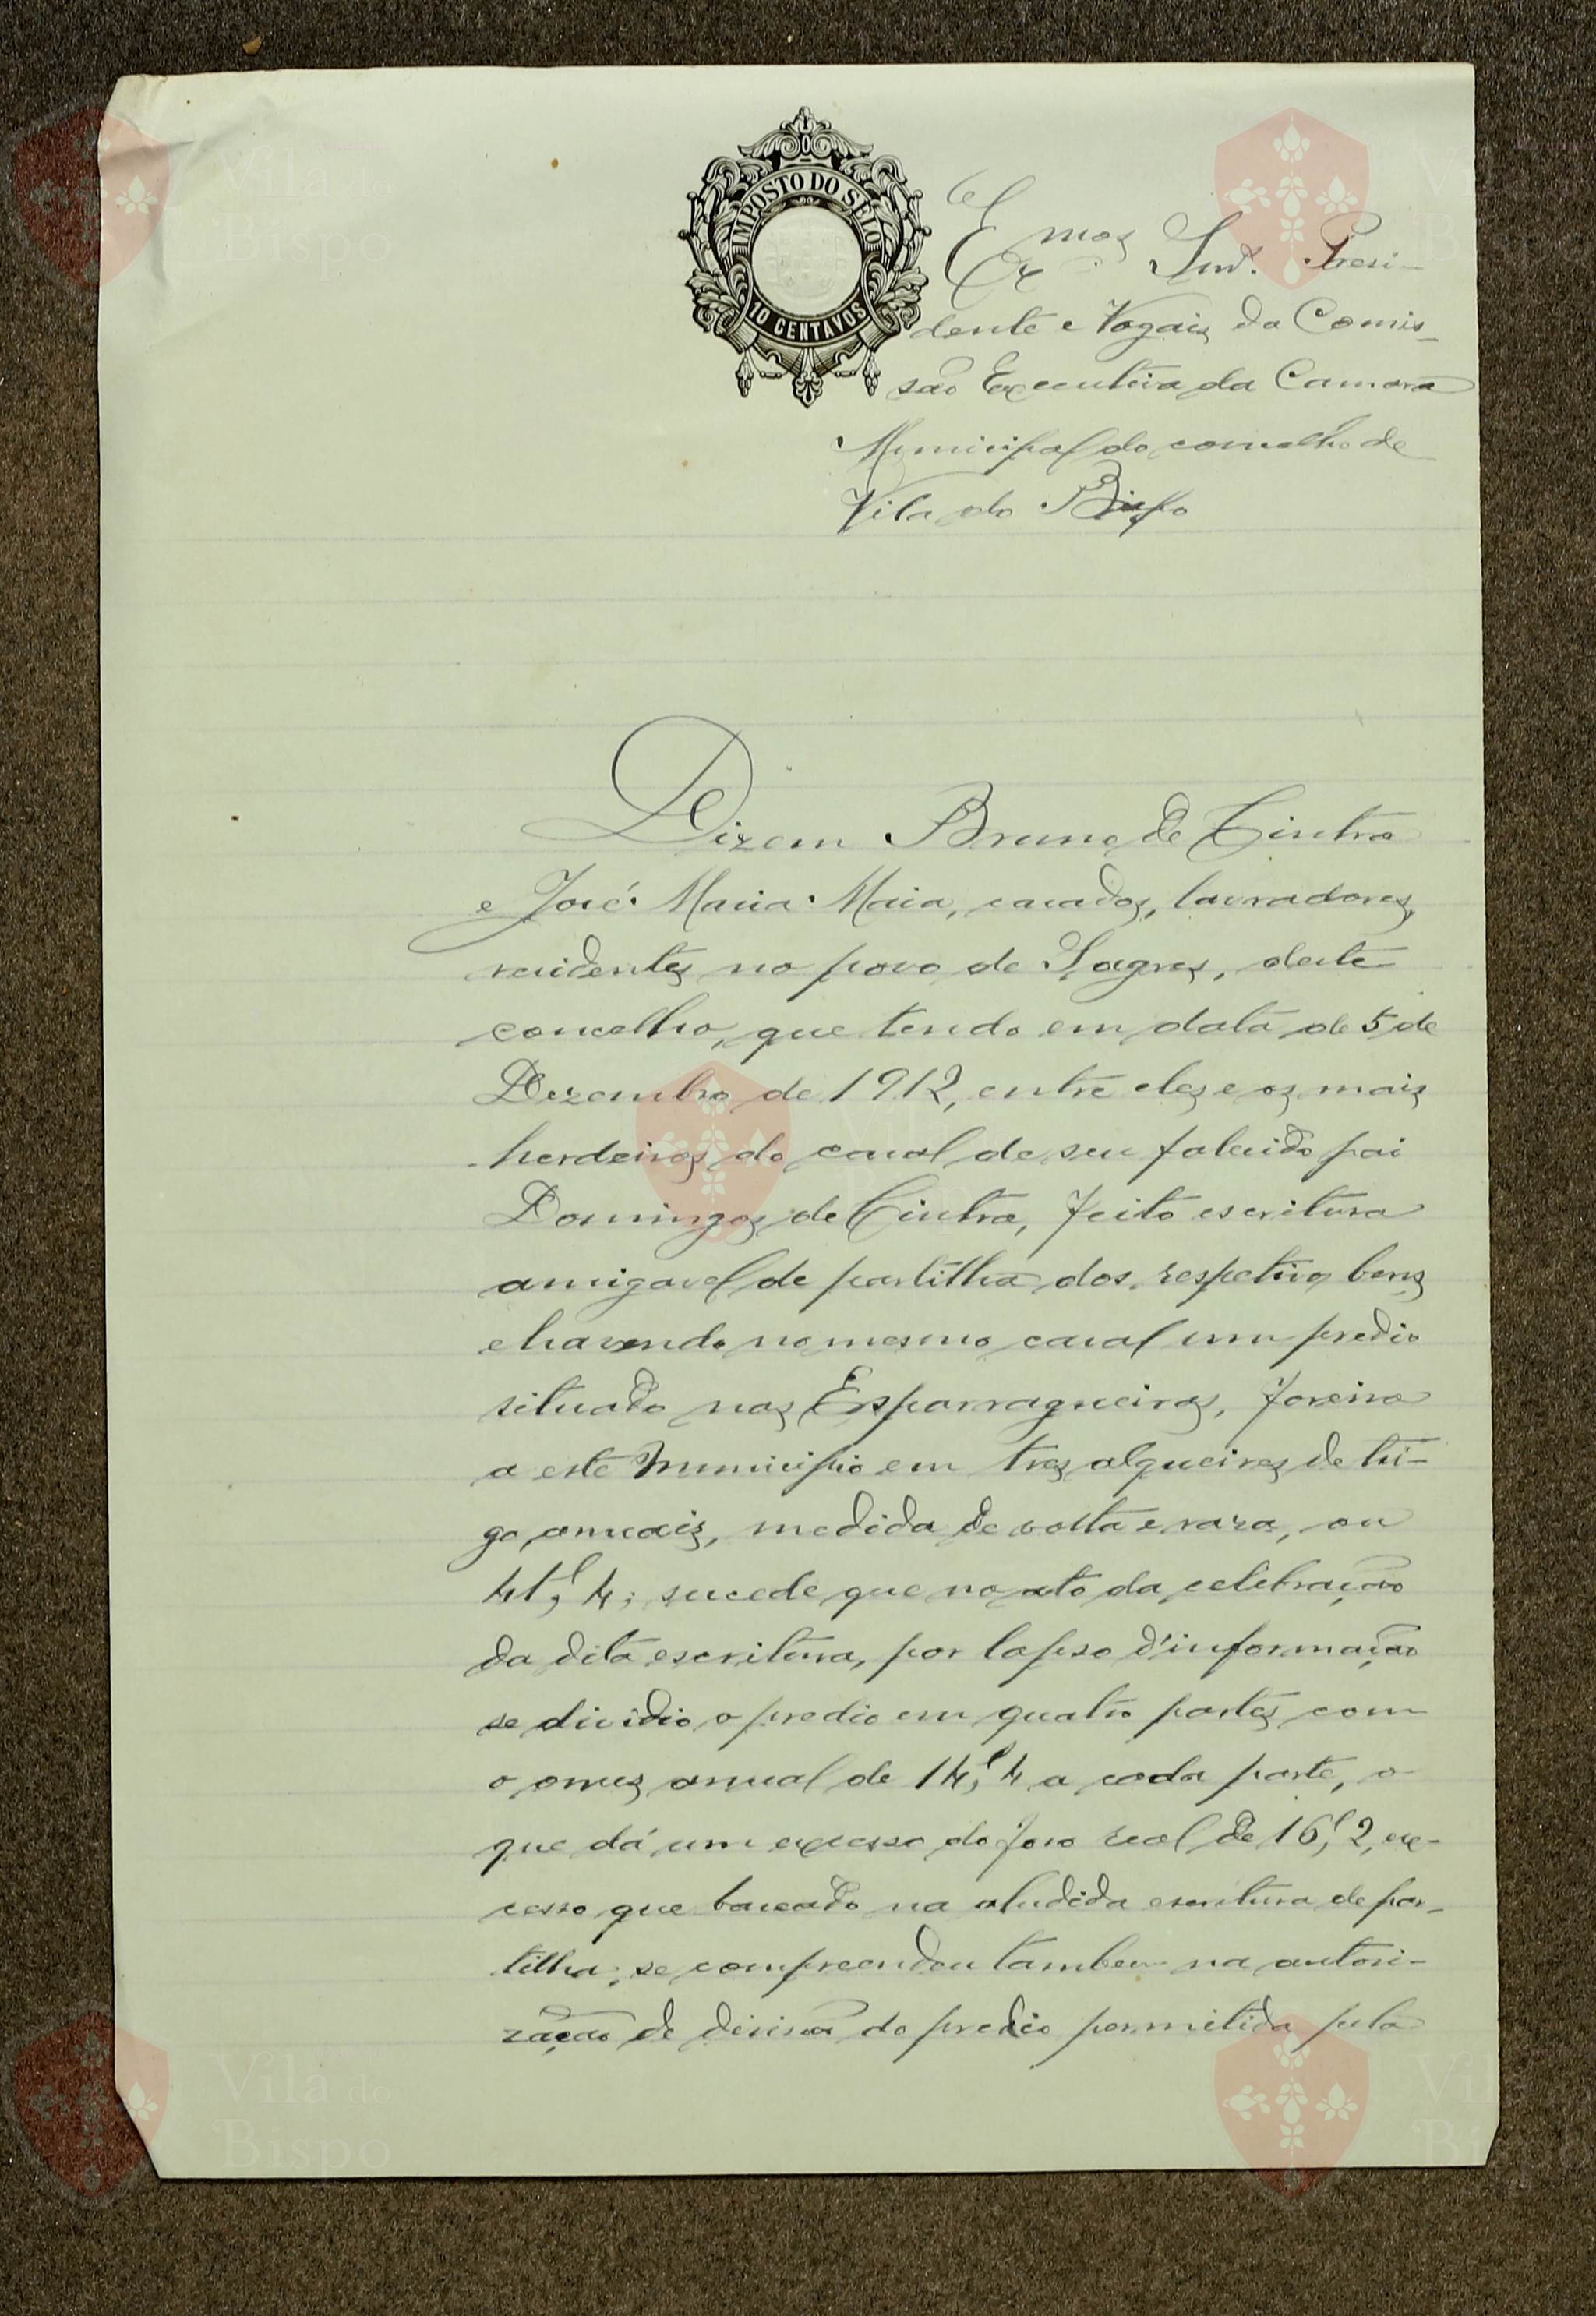 IMPOSTO DO SELO
10 CENTAVOS
Exmos Snrs. Presi-
dente e Vogais da Comis-
são Executiva da Camara
Municipal do concelho de
Vila do Bispo
Dizem Bruno de Cintra
e José Maria Maia, casados, lavradores,
residentes no povo de Sagres, deste
concelho, que tendo em data de 5 de
Dezembro de 1912, entre eles e os mais
herdeiros do casal de seu falecido pai
Domingos de Cintra, feito escritura
amigavel de partilha dos respetivos bens
e havendo no mesmo casal um predio
situado nas Esparragueiras, foreiro
a este Municipio em tres alqueires de tri-
go, anuais, medida de volta e raza, ou
41,l4; sucede que no ato da celebração
da dita escritura, por lapso d'informação
se dividio o predio em quatro partes com
o onus anual de 14,l4 a cada parte, o
que dá um excesso do foro real de 16,l2, ex-
cesso que baseado na aludida escritura de par-
tilha, se compreendeu tambem na autori-
zação de divisão do predio permitida pela
Vila do
Bispo